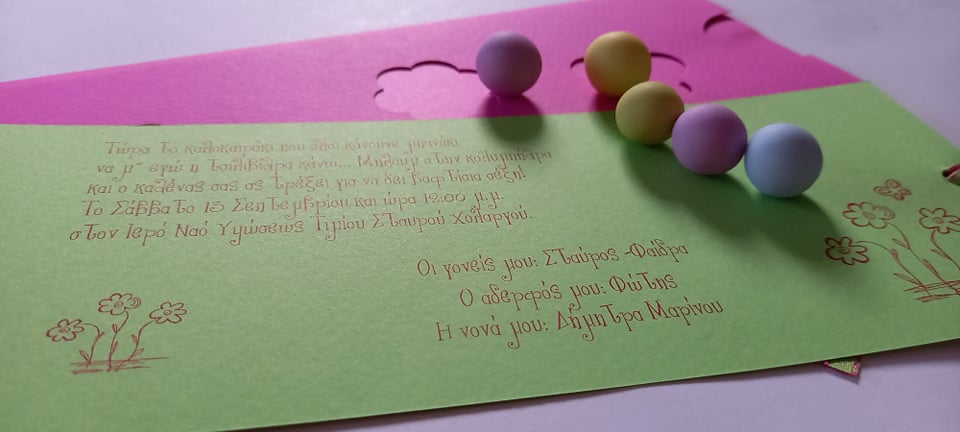 Τώρα το καλοκαιράκι που όλοι κάνουνε μπανάκι
να μ' εγώ η τσιλιβίθρα κάνω... Μπλουμ στην κολυμπήθρα
και ο καθένας σας ας τρέξει για να δει βαφτίσια σεξη!
Το Σάββατο 13 Σεπτεμβρίου και ώρα 12:00 μ.μ.
στον Ιερό Ναό Υψώσεως Τιμίου Σταυρού Χολαργού.
Οι γονείς μου: Σταύρος -Φαίδρα
Ο αδερφός μου: Φώτης
Η νονά μου: Δήμητρα Μαρίνου